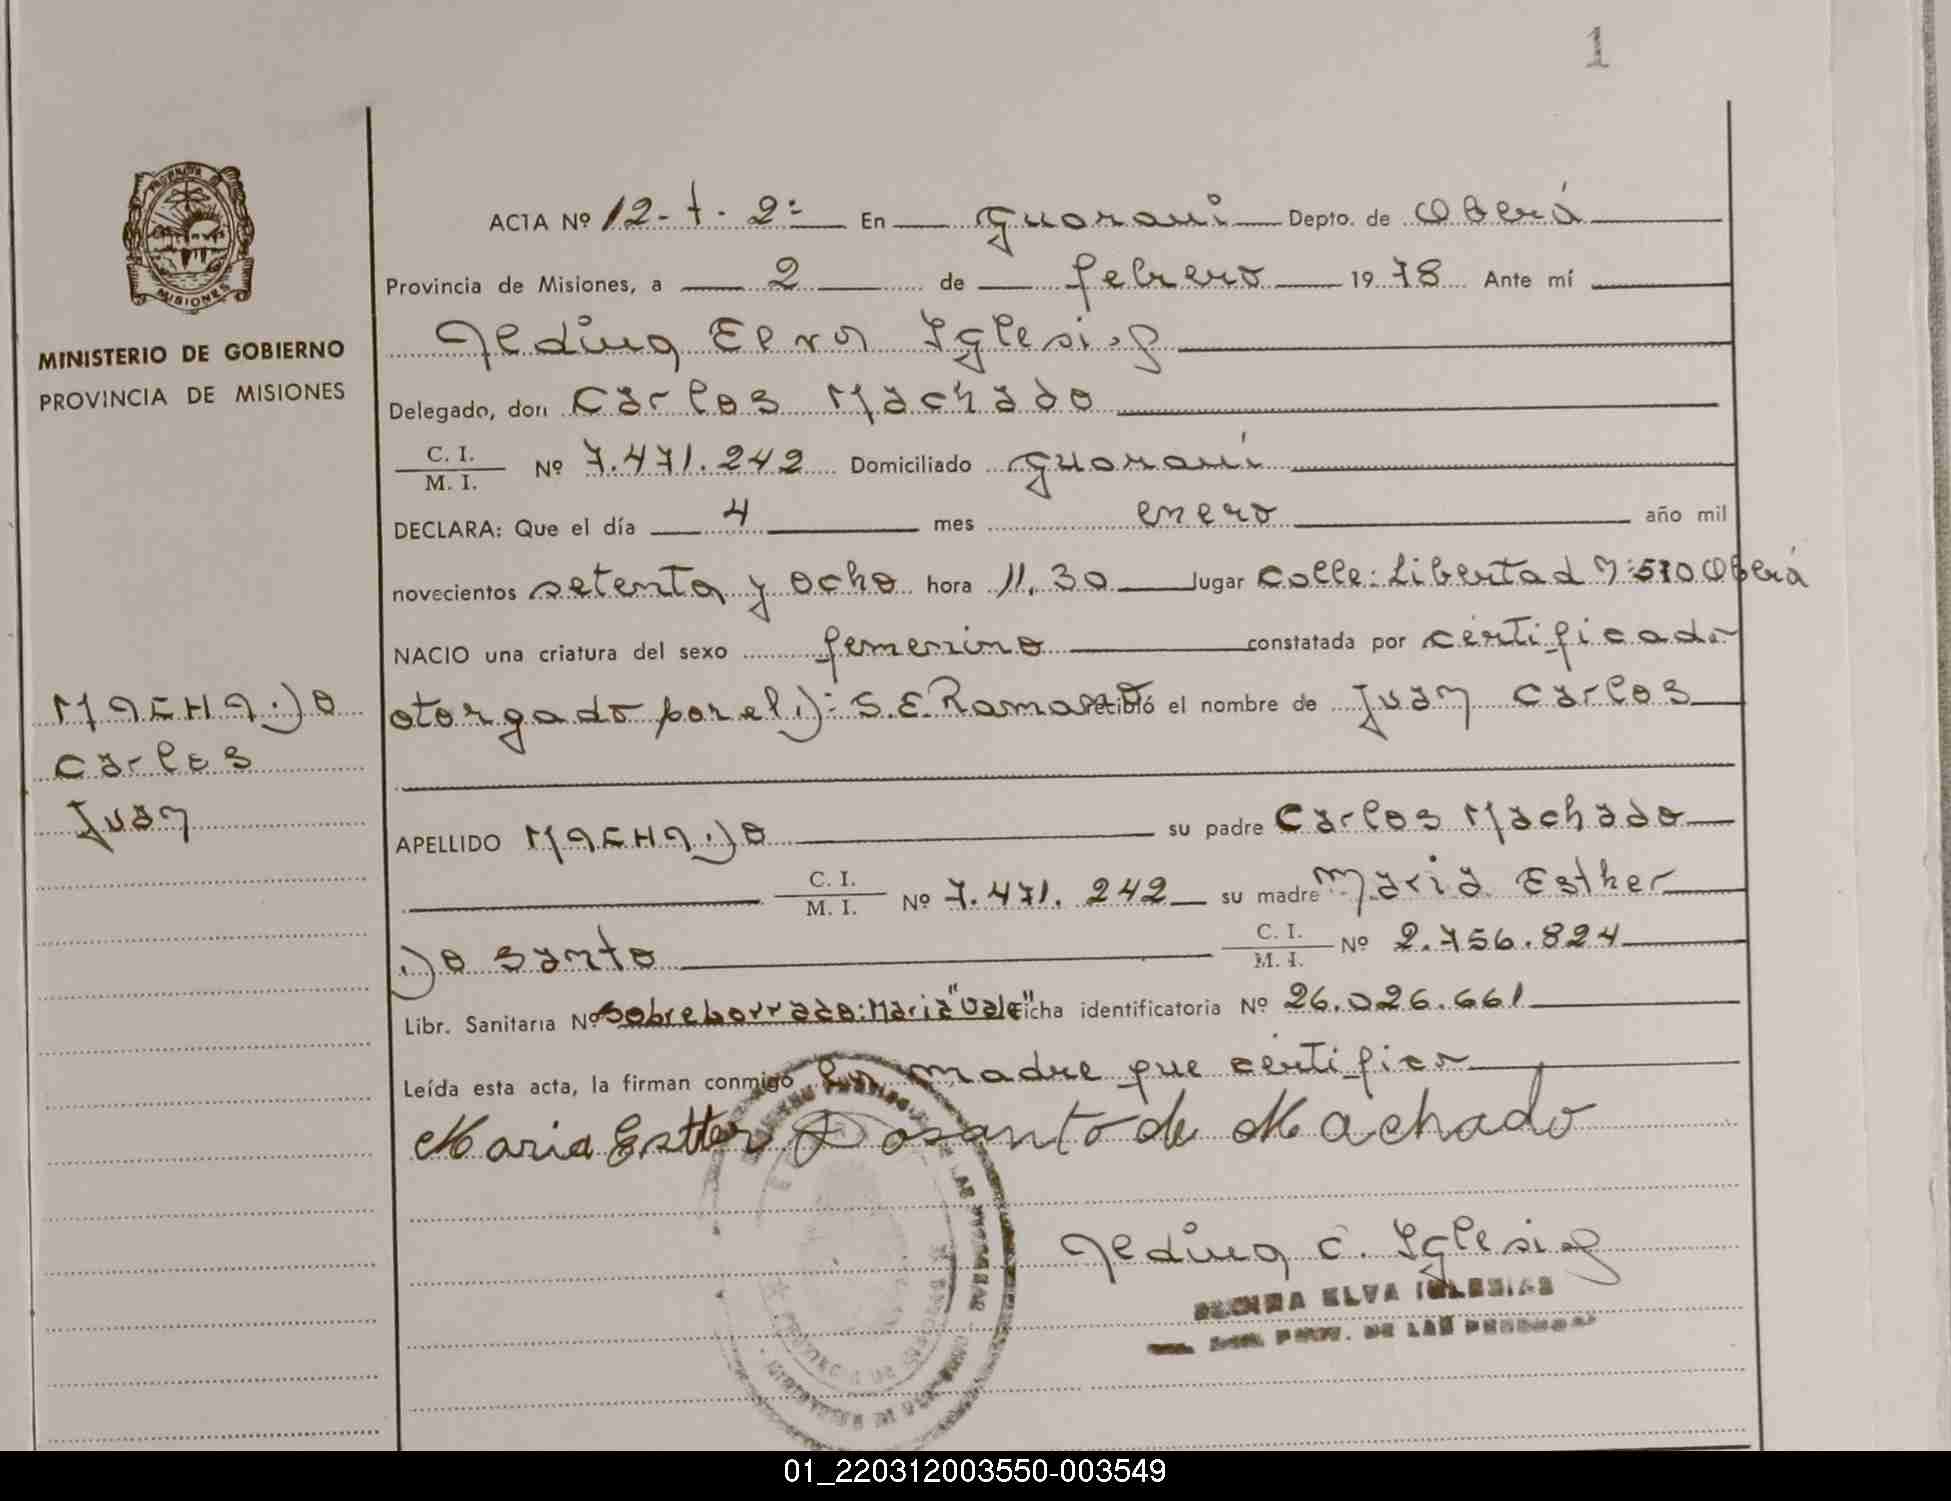 1
PROVINCIA
MISIONES
MINISTERIO DE GOBIERNO
PROVINCIA DE MISIONES
MACHADO
Carlos
Juan
ACTA Nº 12-t-2º En Guaraní Depto. de Oberá
Provincia de Misiones, a 2 de febrero 1978 Ante mí
Elva Iglesias
Delegado, don Carlos Machado
C. I. / M. I. Nº 7.471.242 Domiciliado Guaraní
DECLARA: Que el día 4 mes enero año mil
novecientos setenta y ocho hora 11,30 lugar Calle: Libertad Nº 510 Oberá
NACIO una criatura del sexo femenino constatada por certificado
otorgado por el D: S.E. recibió el nombre de Juan Carlos
APELLIDO MACHADO su padre Carlos Machado
C. I. / M. I. Nº 7.471.242 su madre Maria Esther
Do santo C. I. / M. I. Nº 2.756.824
Libr. Sanitaria Nº Sobreborrado: Maria "Vale" Ficha identificatoria Nº 26.026.661
Leída esta acta, la firman conmigo la madre que certifico
Maria Esther Dosanto de Machado
Iglesias
ELVA IGLESIAS
PROV. DE LAS PERSONAS
01_220312003550-003549